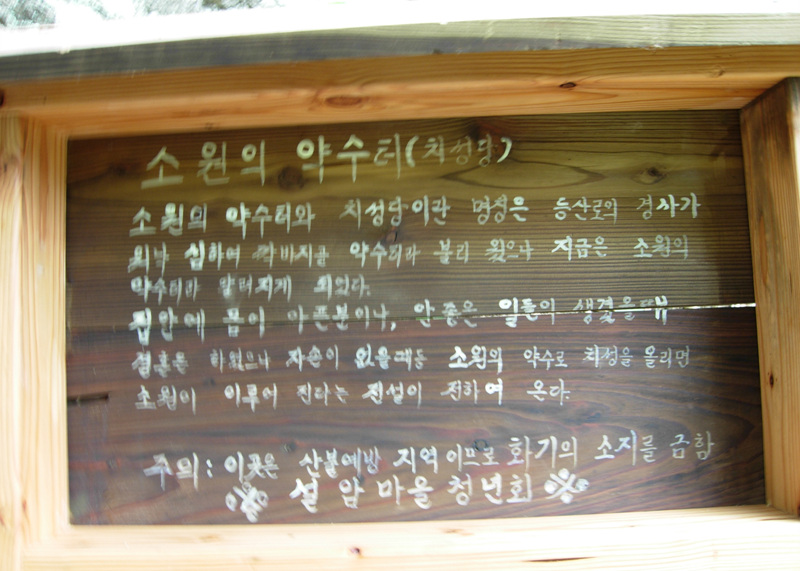 소원의 약수터(치성당)
소원의 약수터와 치성당이란 명칭은 등산로의 경사가
외낙 심하여 깍바지골 약수터라 불리 웠으나 지금은 소원의
약수터라 알려지게 되었다.
집안에 몸이 아픈분이나, 안좋은 일들이 생겼을때
결혼은 하였으나 자손이 없을때등 소원의 약수로 치성을 올리면
소원이 이루어 진다는 전설이 전하여 온다.
주의: 이곳은 산불예방 지역이므로 화기의 소지를 금함
※ 설암마을청년회 ※